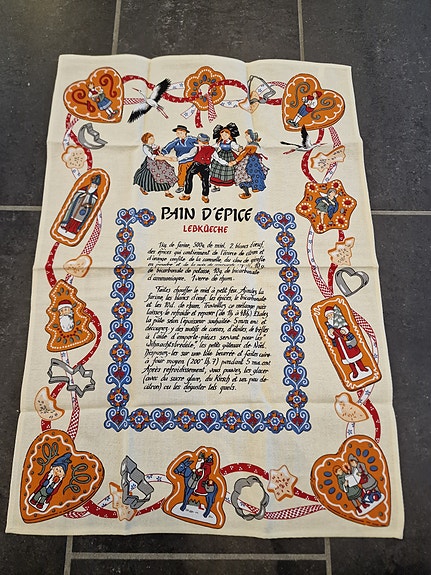 PAIN D'EPICE
LEDKÜECHE
1kg de farine, 500g de miel, 2 blancs d'œuf,
des épices qui contiennent de l'écorce de citron et
d'orange confite de la cannelle, du clou de girofle
de bicarbonate de potasse, 10g de bicarbonate
d'ammoniaque, 1 verre de rhum.
Faites chauffer le miel à petit feu. Ajoutez la
farine, les blancs d'œuf, les épices, le bicarbonate
et les du rhum. Travaillez ce mélange puis
laissez-le refroidir et reposer (de 1h à 1h½). Etalez
la pâte selon l'épaisseur souhaitée 5 mm env. et
découpez-y des motifs de cœurs, d'étoiles, de trèfles
à l'aide d'emporte-pièces servant pour les
"Wihnachtsbredele", les petits gâteaux de Noël.
Disposez-les sur une tôle beurrée et faites cuire
à four moyen (200° th.7) pendant 5 mn env.
Après refroidissement, vous pouvez les glacer
(avec du sucre glace, du Kirsch et un peu de
citron) ou les déguster tels quels.